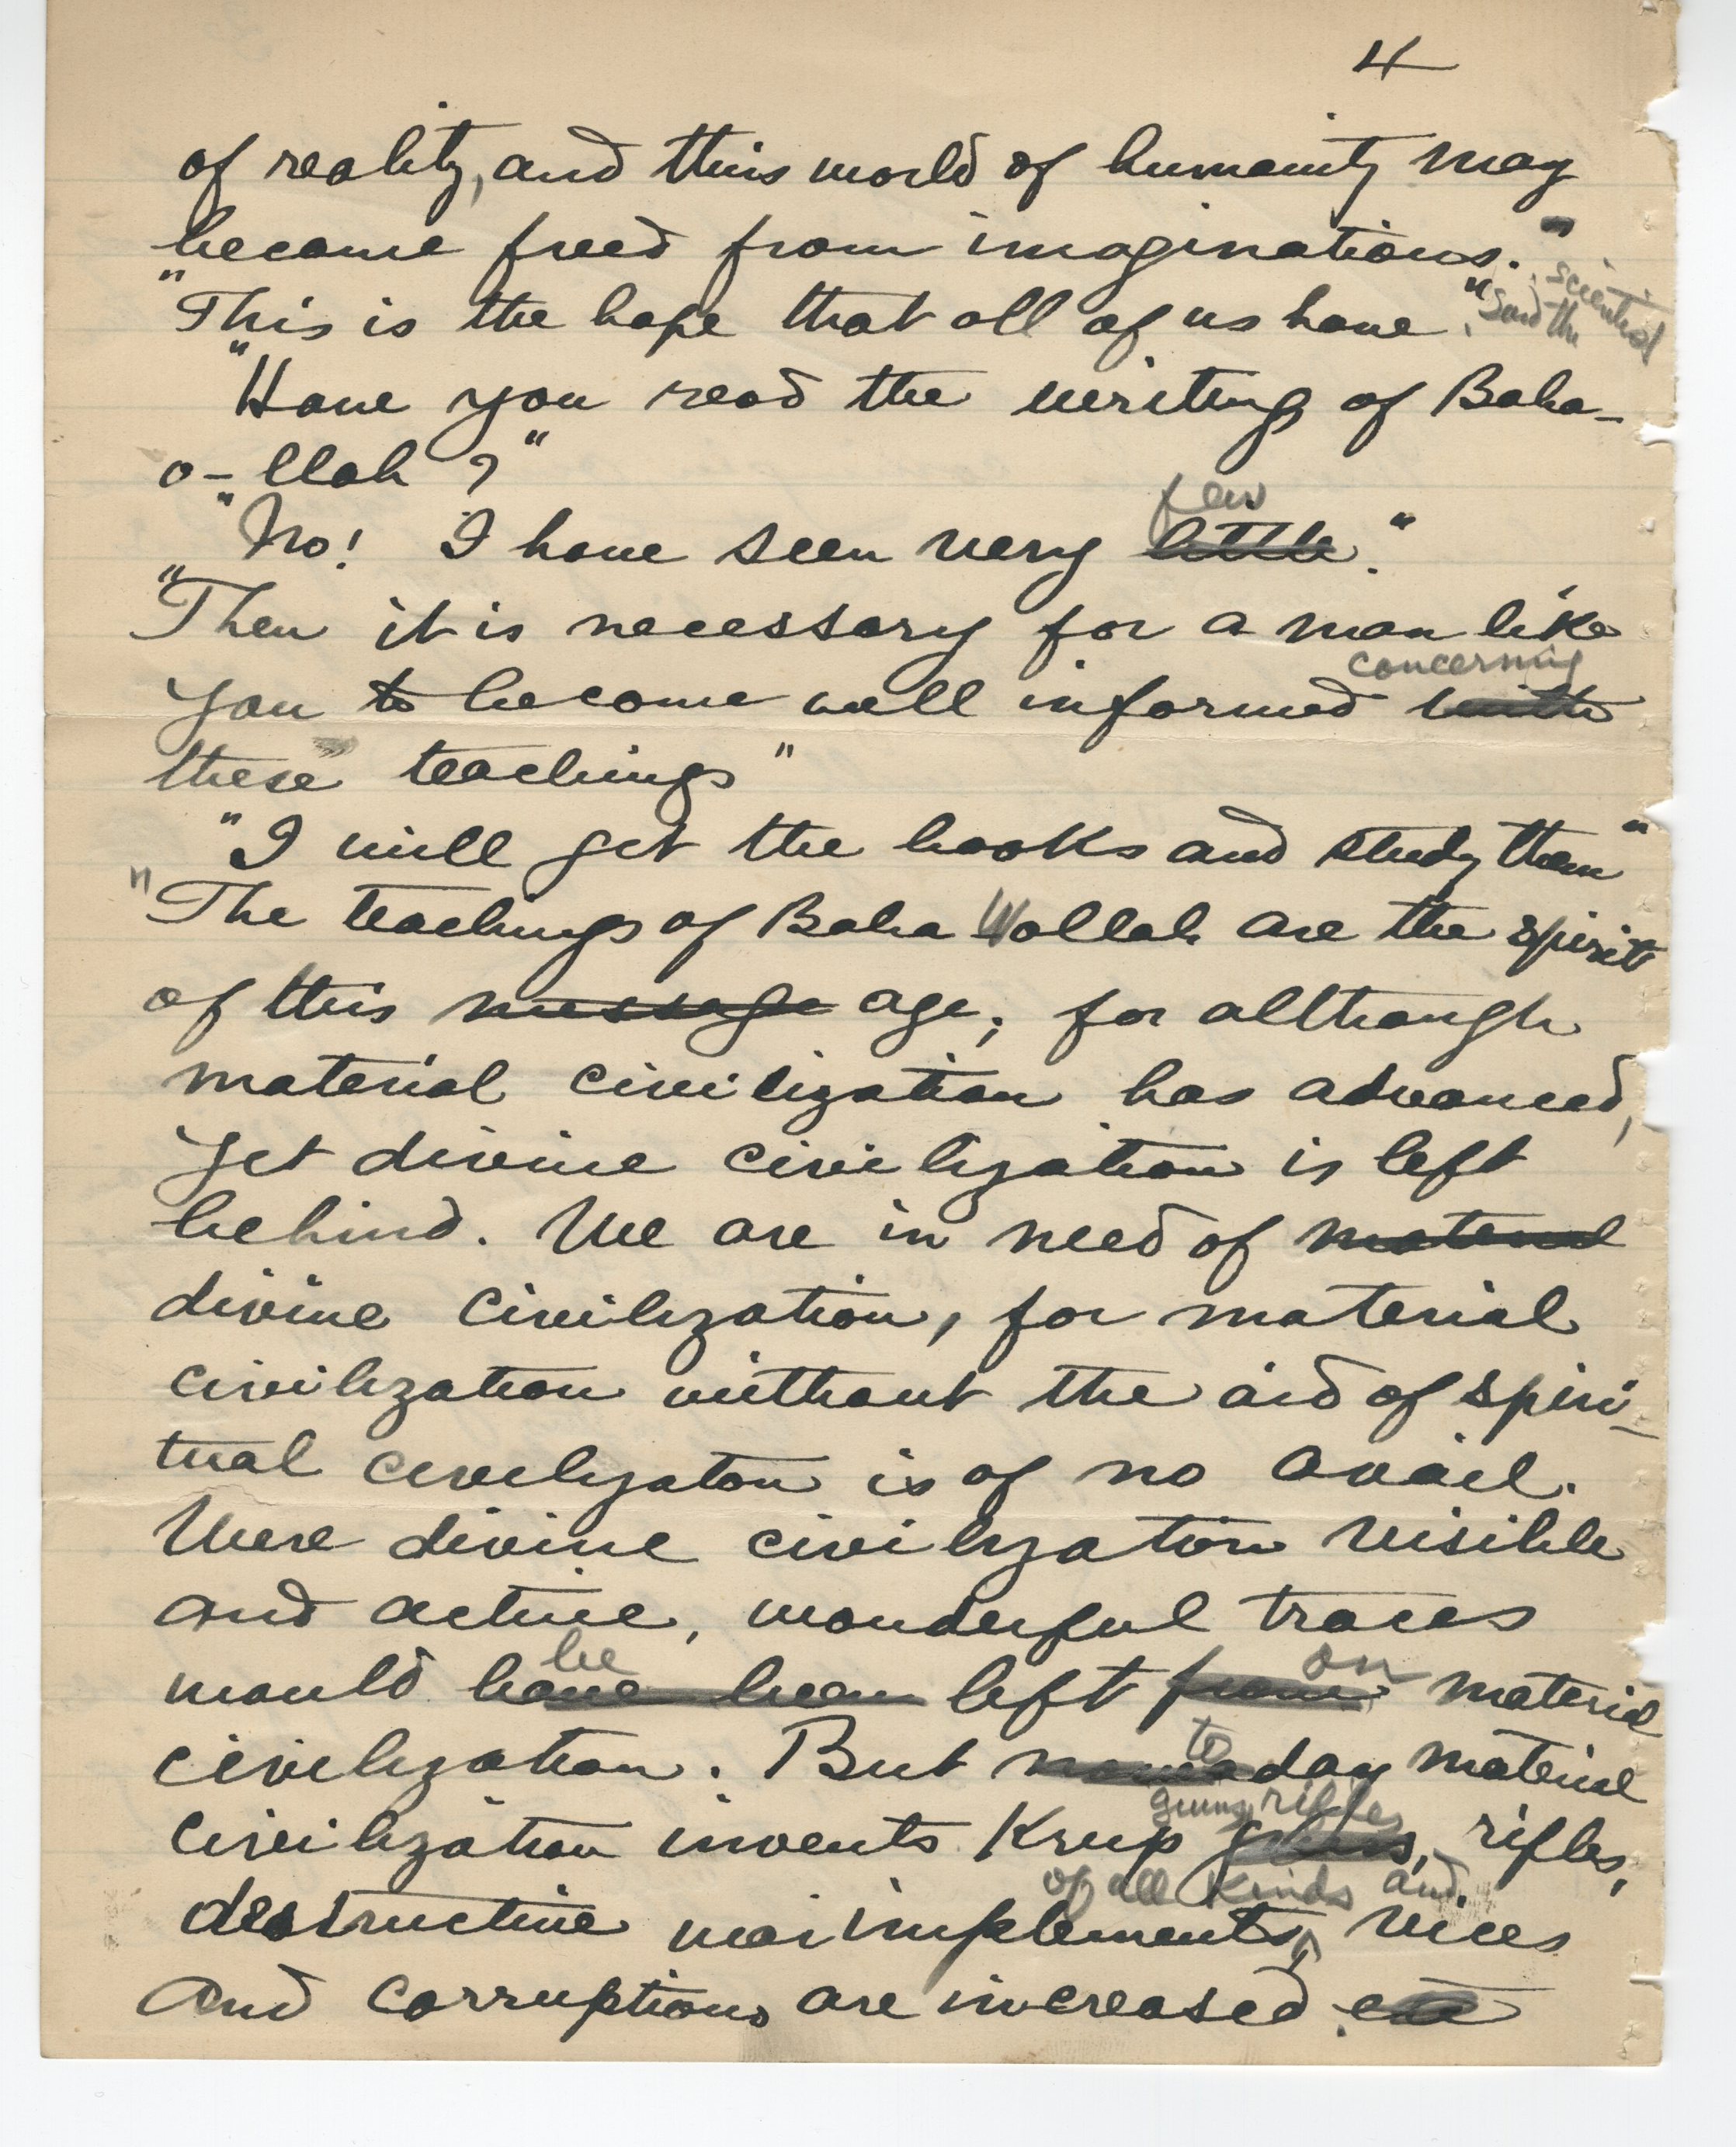 4
of reality, and this world of humanity may
become freed from imaginations."
"This is the hope that all of us have." said the scientist
"Have you read the writings of Baha-
o-llah?"
few
"No! I have seen very little."
"Then it is necessary for a man like
concerning
you to become well informed with
these teachings"
"I will get the books and study them"
"The teachings of Baha Wollah are the spirit
of this message age; for although
material civilization has advanced,
yet divine civilization is left
behind. We are in need of material
divine civilization, for material
civilization without the aid of spiri-
tual civilizaton is of no avail.
Were divine civilization visible
and active, wonderful traces
be on
would have been left from material
to
civilization. But day material
guns, rifles
civilization invents Krup guns, rifles,
of all kinds and
destructive war implements, vices
and corruptions are increased. etc